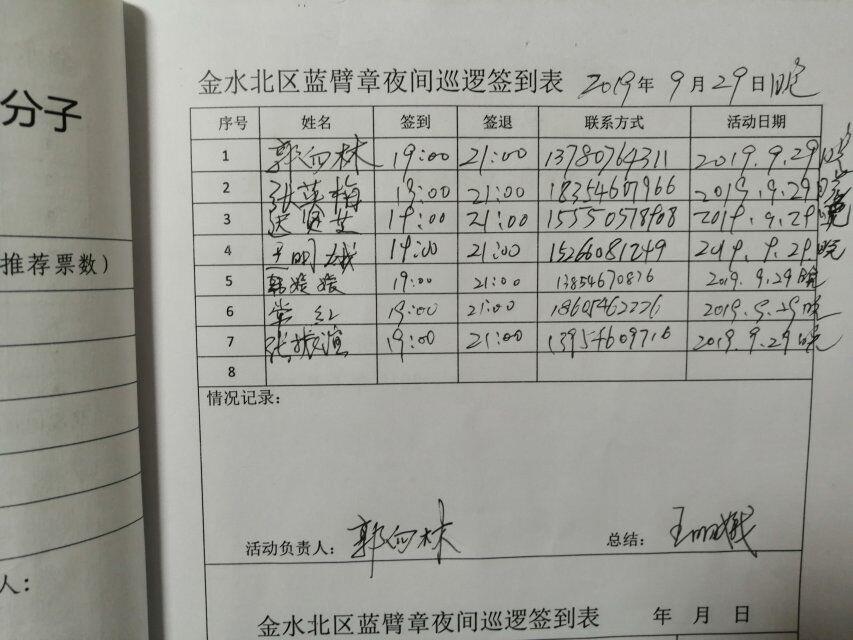 分子
推荐票数）
人：
金水北区蓝臂章夜间巡逻签到表 2019年 9月29日晚
序号 姓名 签到 签退 联系方式 活动日期
1 郭向林 19:00 21:00 13780764311 2019.9.29晚
2 张英梅 19:00 21:00 18354607966 2019.9.29晚
3 19:00 21:00 15550578908 2019.9.29晚
4 王明娥 19:00 21:00 15266081249 2019.9.29晚
5 韩媛媛 19:00 21:00 13854670826 2019.9.29晚
6 常红 19:00 21:00 18605462226 2019.9.29晚
7 张振渲 19:00 21:00 13954609716 2019.9.29晚
8
情况记录：
活动负责人：郭向林 总结：王明娥
金水北区蓝臂章夜间巡逻签到表 年 月 日